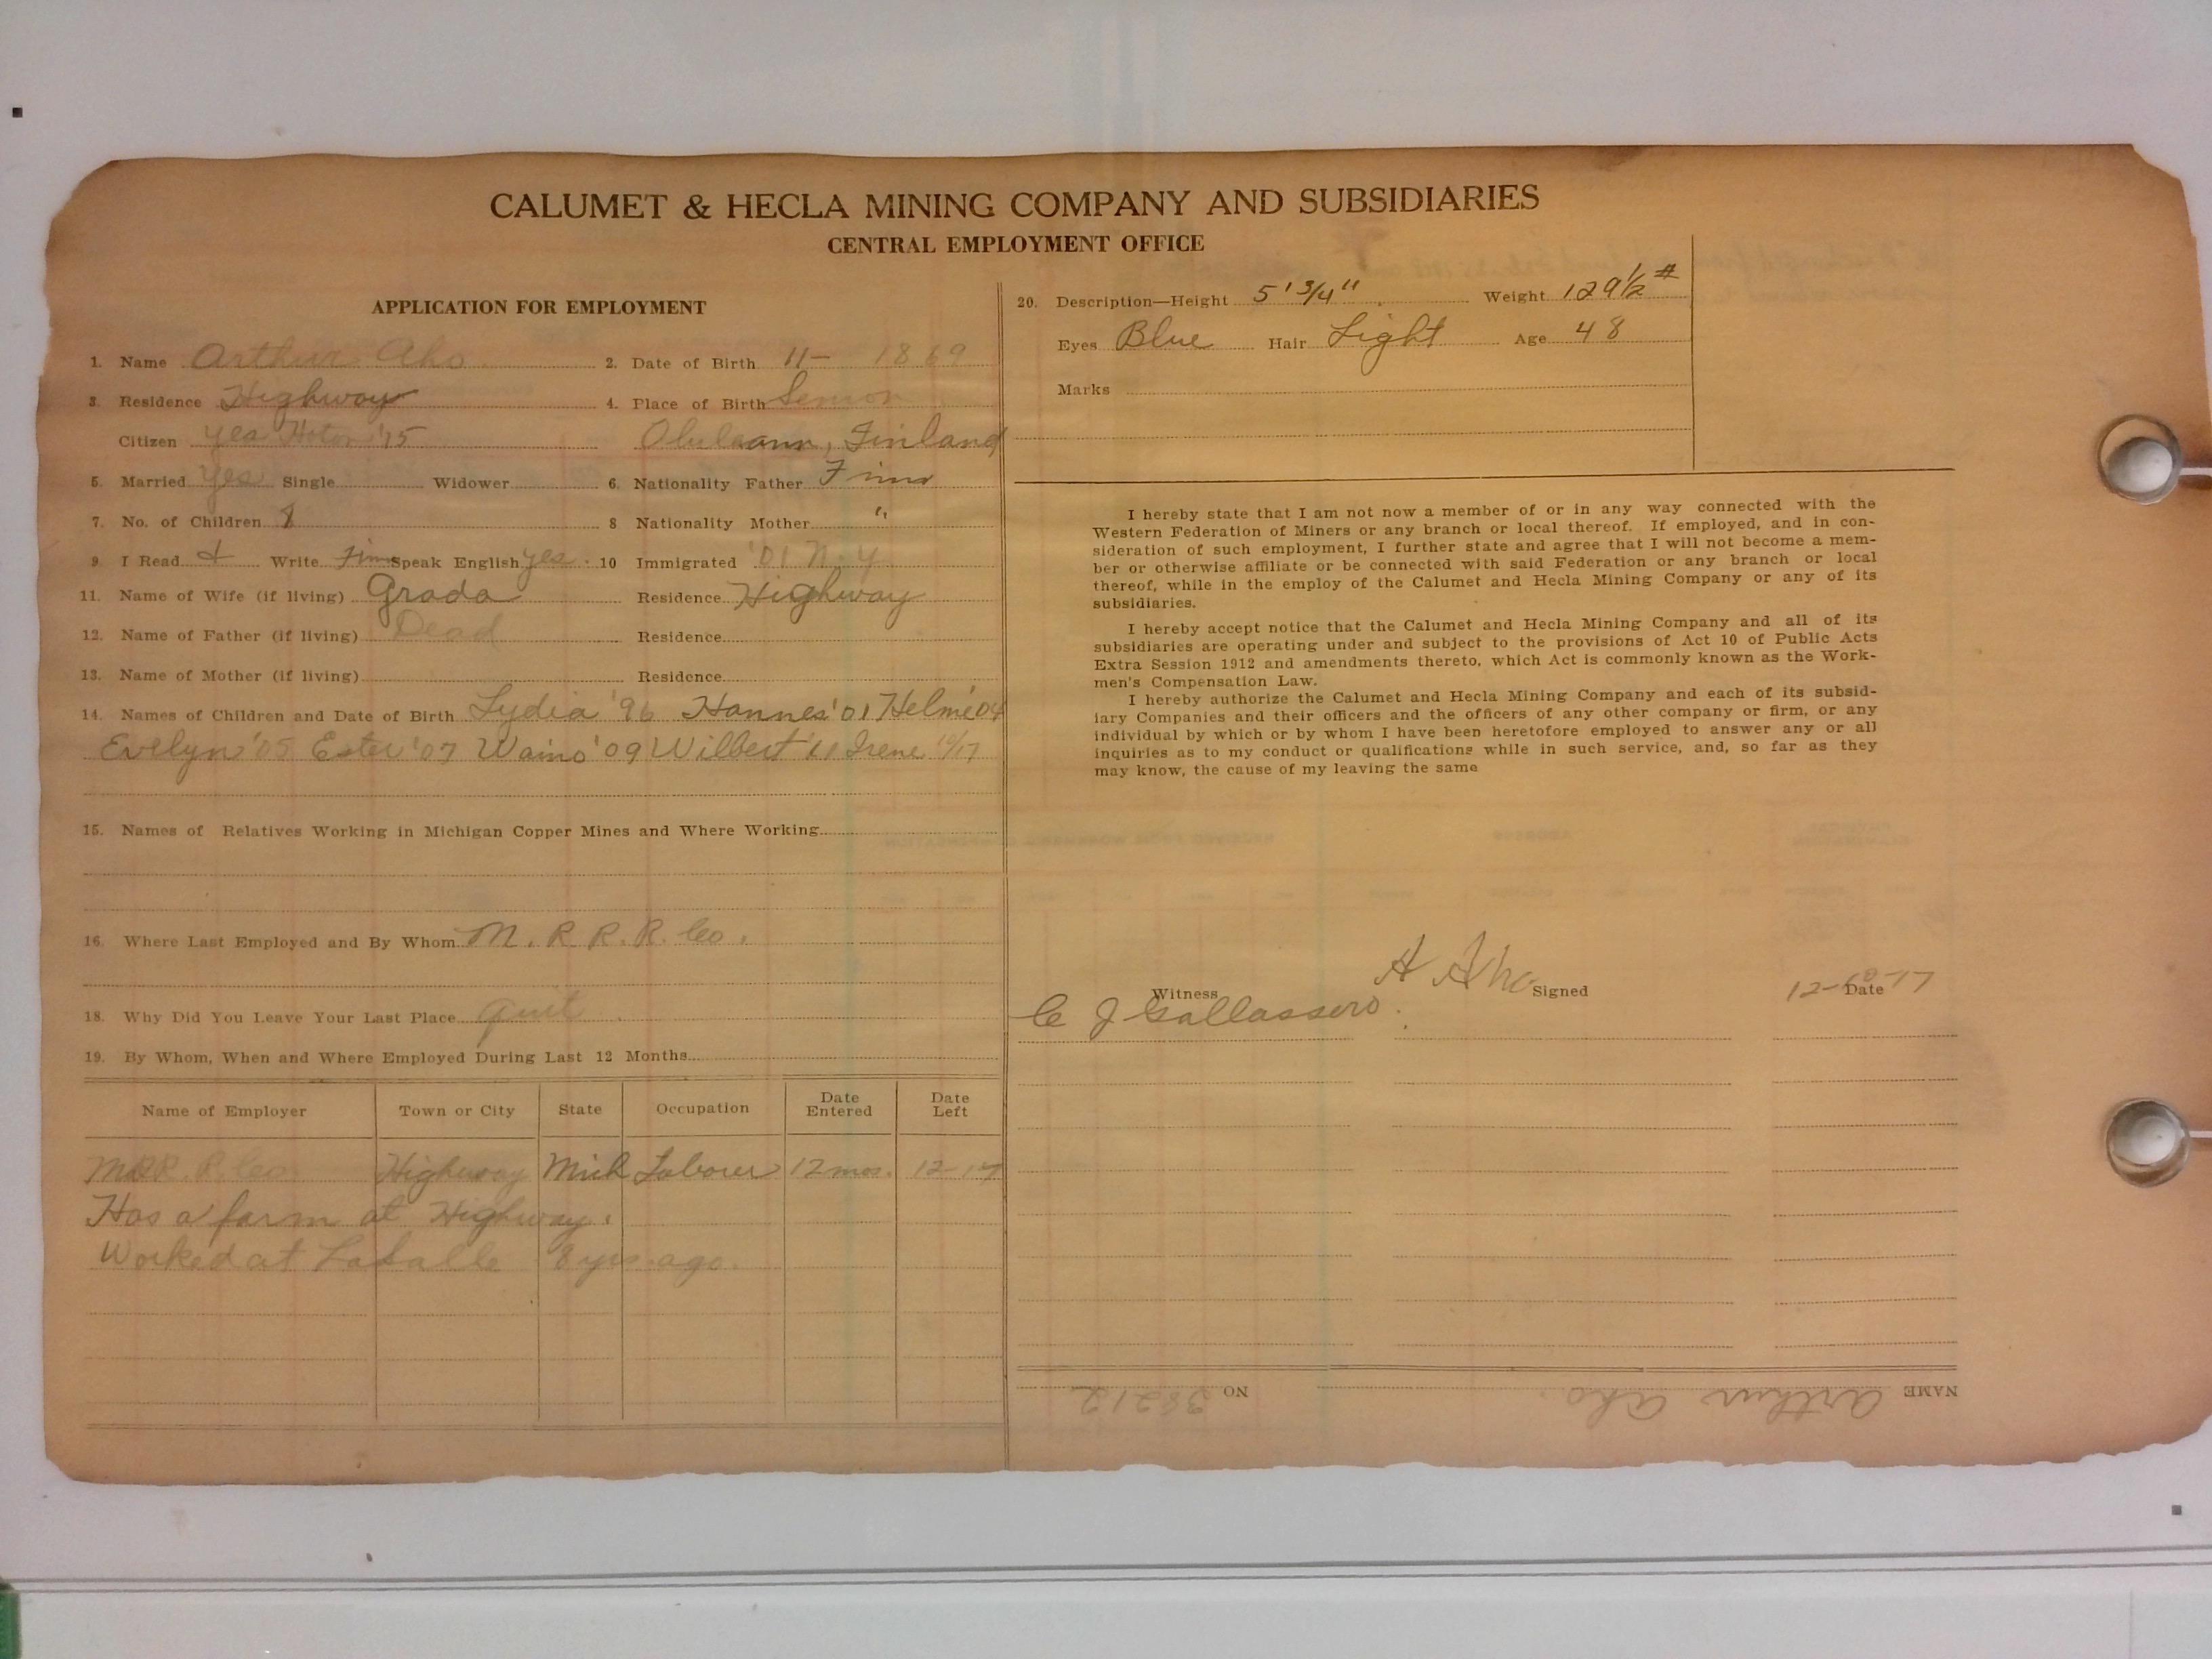 CALUMET & HECLA MINING COMPANY AND SUBSIDIARIES
CENTRAL EMPLOYMENT OFFICE
APPLICATION FOR EMPLOYMENT
1. Name Arthur Aho 2. Date of Birth 11- 1869
3. Residence Highway 4. Place of Birth
Citizen yes '15 Finland
5. Married Yes Single Widower 6. Nationality Father Finn
7. No. of Children 8 8 Nationality Mother "
9 I Read & Write Finn Speak English yes. 10 Immigrated '01 N.Y
11. Name of Wife (if living) Grada Residence Highway
12. Name of Father (if living) Dead Residence
13. Name of Mother (if living) Residence
14. Names of Children and Date of Birth Lydia '96 Hannes '01 Helmi '04
Evelyn '05 Ester '07 Waino '09 Wilbert '11 Irene 10/17
15. Names of Relatives Working in Michigan Copper Mines and Where Working
16. Where Last Employed and By Whom M. R R. R. Co.
18. Why Did You Leave Your Last Place quit
19. By Whom, When and Where Employed During Last 12 Months
Name of Employer Town or City State Occupation Date Entered Date Left
M.R.R. R. Co. Highway Mich Laborer 12 mos. 12-17
Has a farm at Highway.
Worked at LaSalle 8 yrs. ago.
20. Description—Height 5' 3/4" Weight 129½ #
Eyes Blue Hair Light Age 48
Marks
I hereby state that I am not now a member of or in any way connected with the
Western Federation of Miners or any branch or local thereof. If employed, and in con-
sideration of such employment, I further state and agree that I will not become a mem-
ber or otherwise affiliate or be connected with said Federation or any branch or local
thereof, while in the employ of the Calumet and Hecla Mining Company or any of its
subsidiaries.
I hereby accept notice that the Calumet and Hecla Mining Company and all of its
subsidiaries are operating under and subject to the provisions of Act 10 of Public Acts
Extra Session 1912 and amendments thereto, which Act is commonly known as the Work-
men's Compensation Law.
I hereby authorize the Calumet and Hecla Mining Company and each of its subsid-
iary Companies and their officers and the officers of any other company or firm, or any
individual by which or by whom I have been heretofore employed to answer any or all
inquiries as to my conduct or qualifications while in such service, and, so far as they
may know, the cause of my leaving the same
Witness Signed Date
C J A Aho 12- -17
NAME Arthur Aho. NO 38212